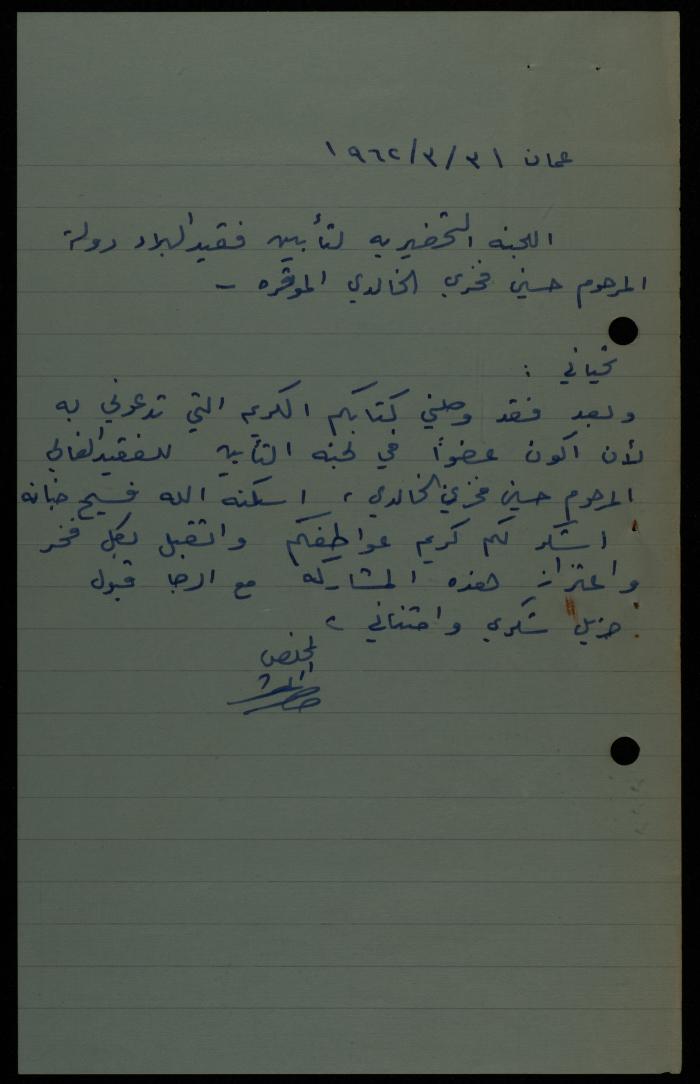 عمان ٣١/٣/١٩٦٢
اللجنه التحضيريه لتأبين فقيد البلاد دولة
المرحوم حسين فخري الخالدي الموقره –
تحياتي :
وبعد فقد وصلني كتابكم الكريم التي تدعوني به
لأن اكون عضواً في لجنه التأبين للفقيد الغالي
المرحوم حسين فخري الخالدي ، اسكنه الله فسيح جنانه
اشكر لكم كريم عواطفكم واتقبل بكل فخر
واعتزاز هذه المشاركه مع الرجا قبول
جزيل شكري وامتناني ،
المخلص